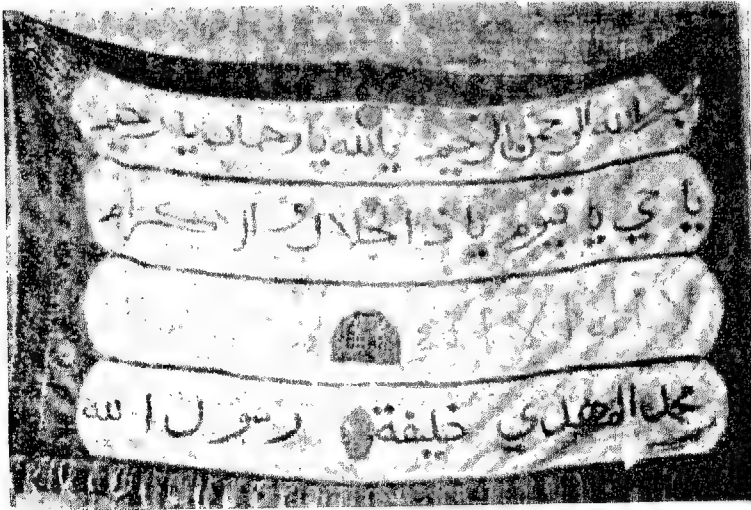 بسم الله الرحمن الرحيم يالله يارحمان يارحيم
ياحي يا قيوم ياذا الجلال والاكرام
محمد المهدي خليفة رسول الله